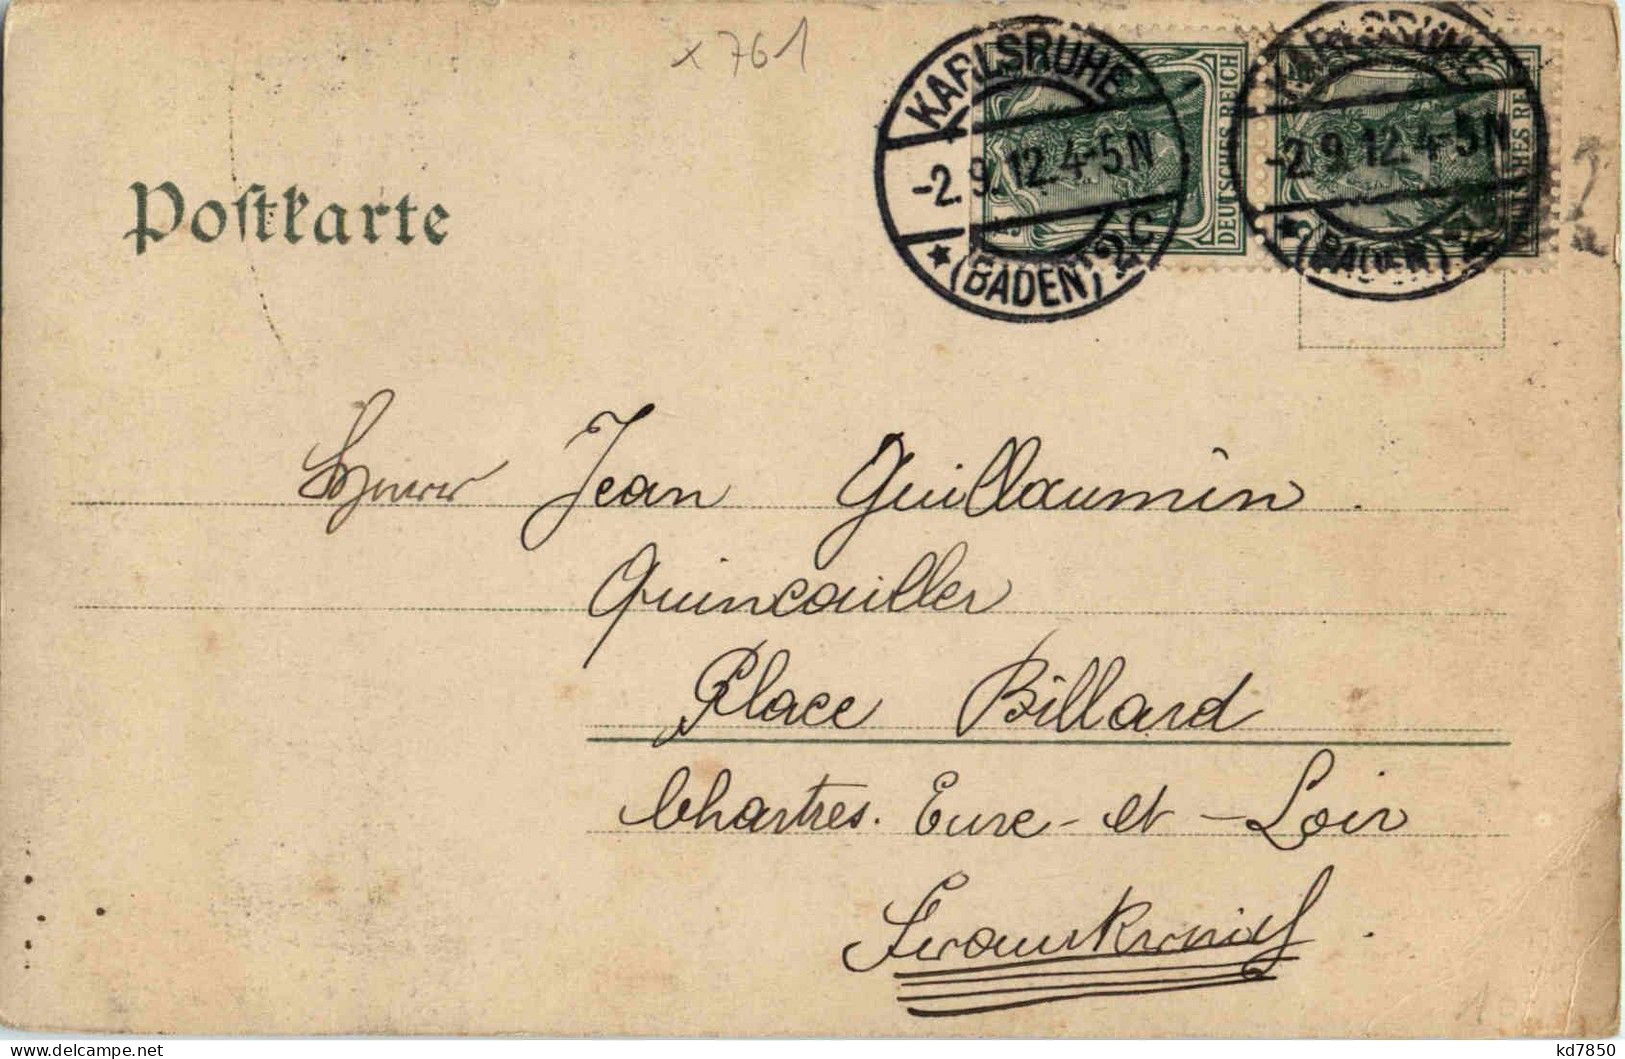 x 761
KARLSRUHE
-2.9.12.4-5N
* (BADEN) 2C
DEUTSCHES REICH
KARLSRUHE
-2.9.12.4-5N
* (BADEN) 2
DEUTSCHES REICH
Postkarte
Herrn Jean Guillaumin.
Quincailler
Place Billard
Chartres. Eure-et-Loir
Frankreich.
kd7850